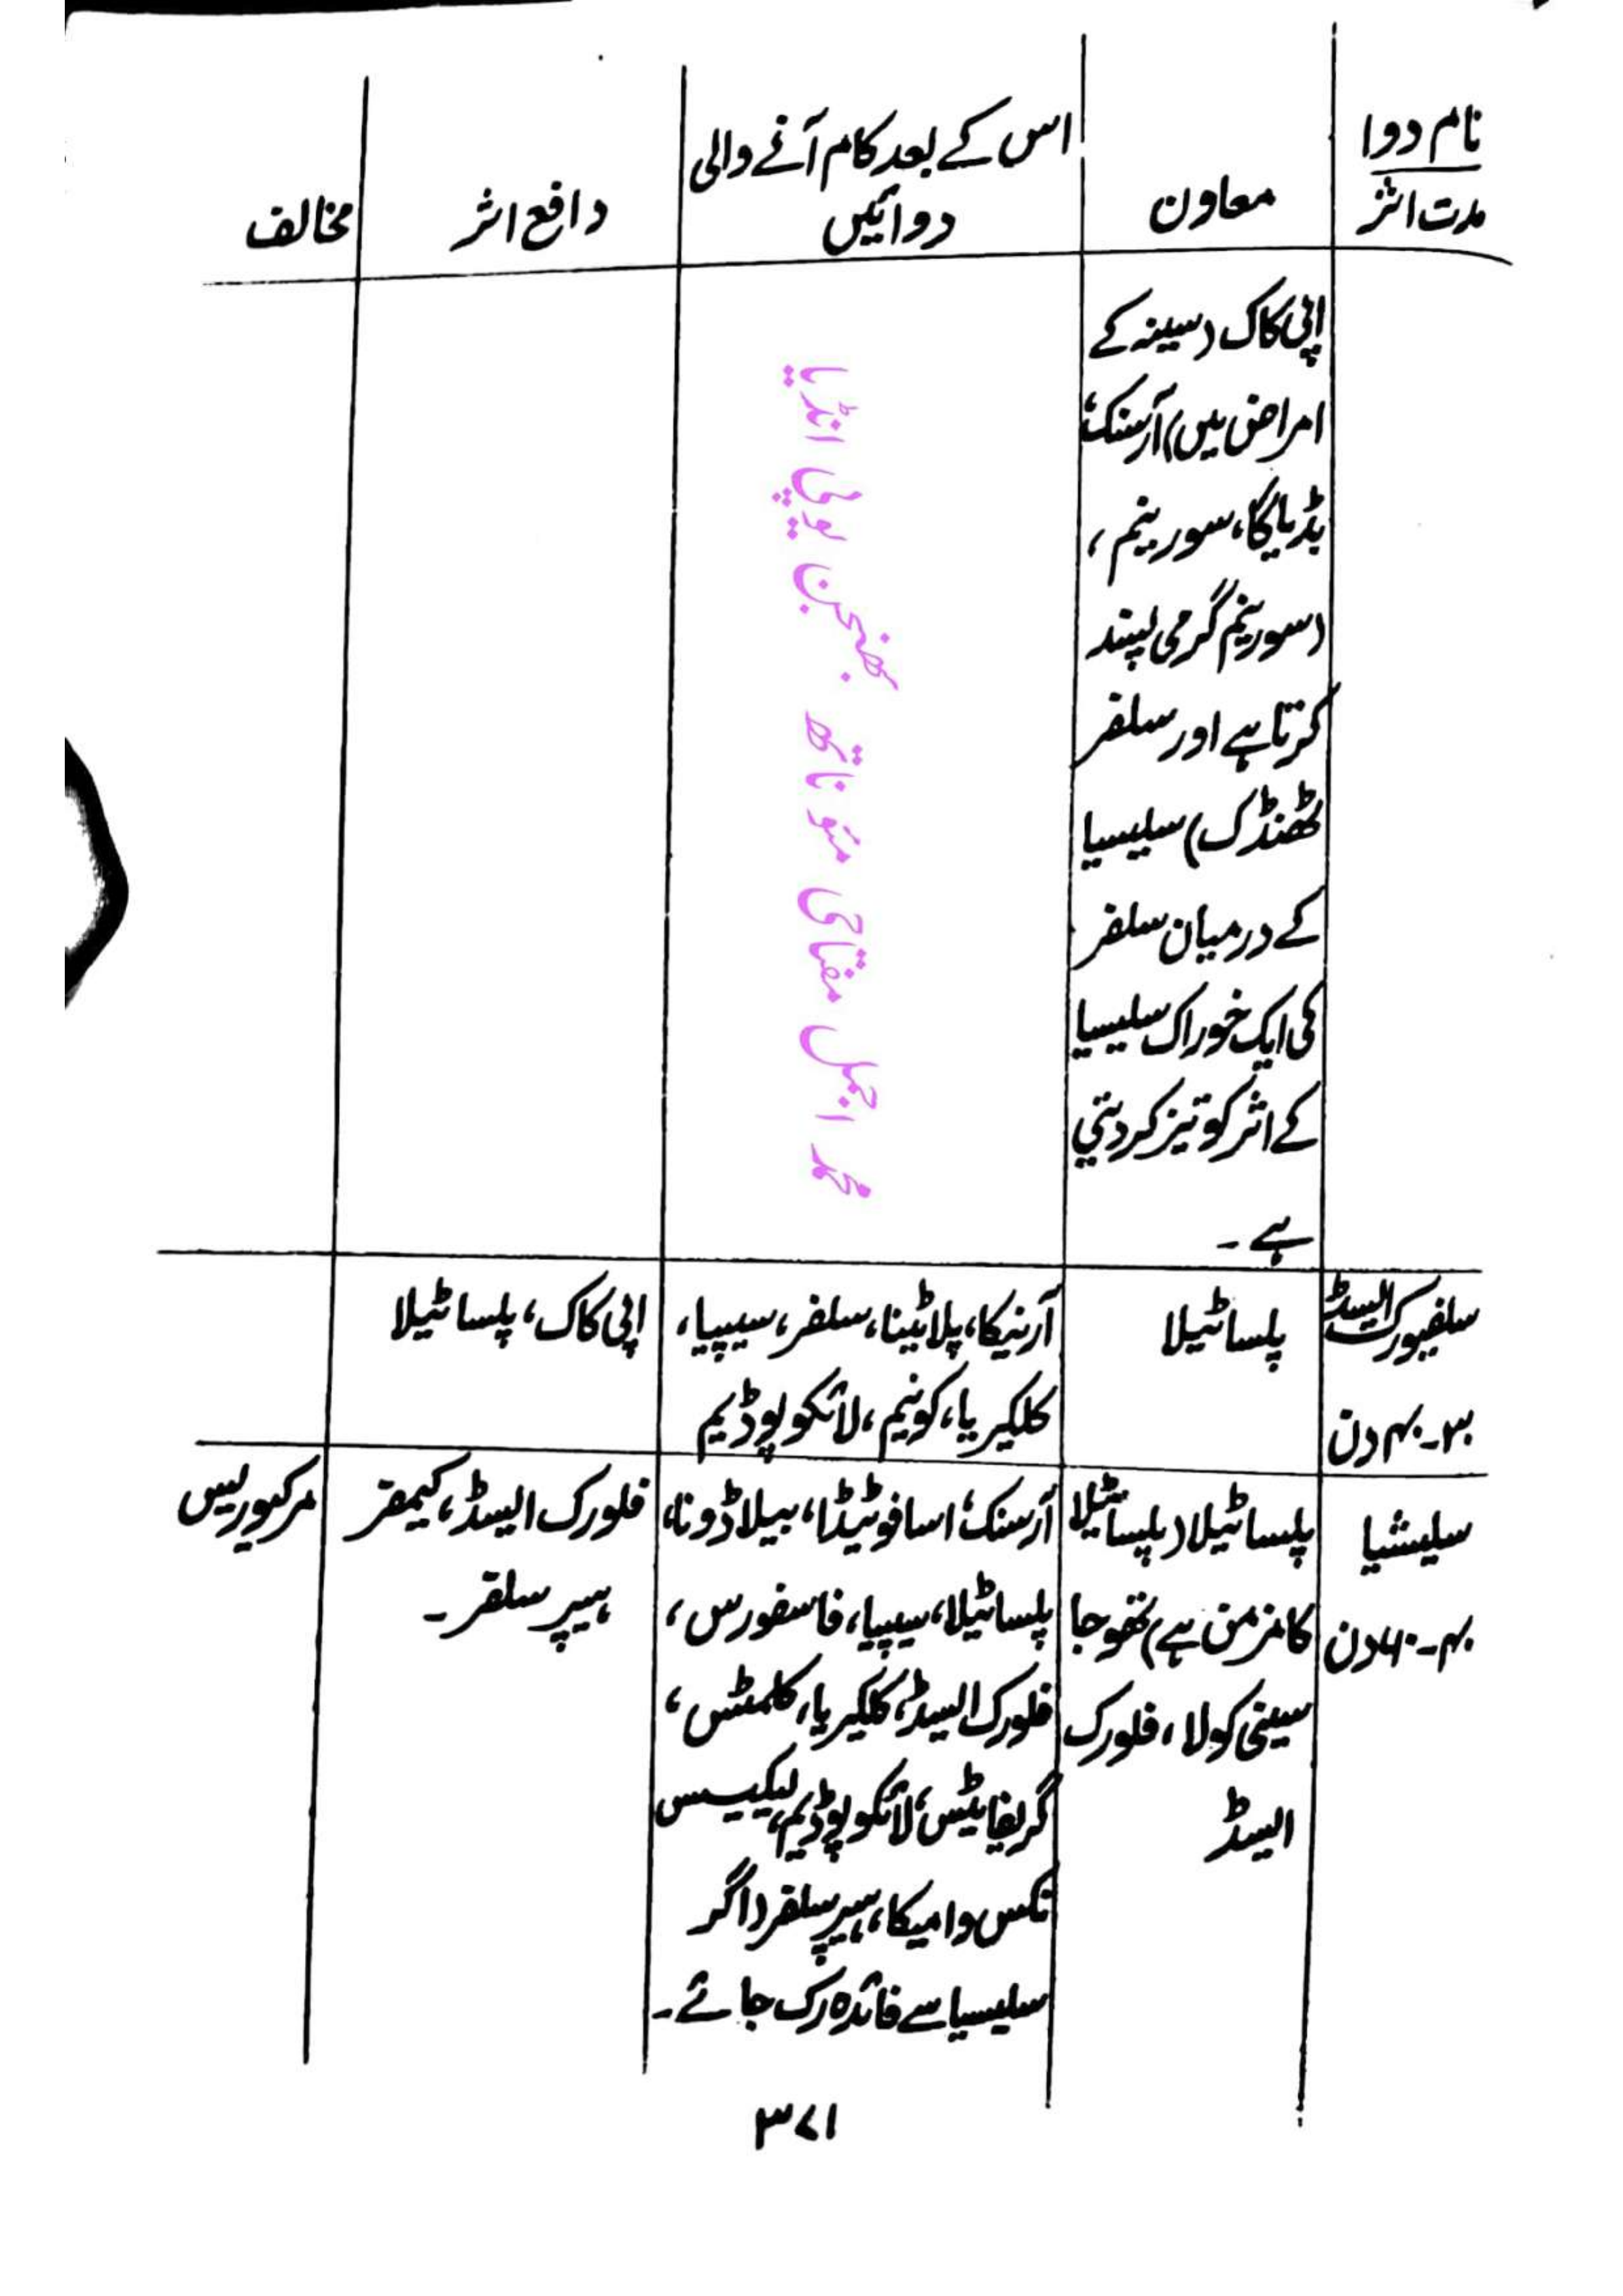 نام دوا
مدت اثر
معاون
اس کے بعد کام آنے والی
دوائیں
دافع اثر
مخالف
اپی کاک (سینہ کے
امراض میں) آرسنک،
بڈیاگا، سورینم،
(سورینم گرمی پسند
کرتا ہے اور سلفر
ٹھنڈک) سلیسیا
کے درمیان سلفر
کی ایک خوراک سلیسیا
کے اثر کو تیز کر دیتی
ہے ۔
محمد اجمل مفتاحی مئو ناتھ بھنجن یوپی انڈیا
سلفیورک ایسڈ
۳۰-۴۰ دن
پلساٹیلا
آرنیکا، پلاٹینا، سلفر، سیپیا،
کلکیریا، کونیم، لائکوپوڈیم
اپی کاک، پلساٹیلا
سلیشیا
۴۰-۶۰ دن
پلساٹیلا (پلساٹیلا
کا مزمن ہے) تھوجا
سینی کولا، فلورک
ایسڈ
آرسنک، اسافوٹیڈا، بیلاڈونا،
پلساٹیلا، سیپیا، فاسفورس،
فلورک ایسڈ، کلکیریا، کلمٹس،
گریفائٹس، لائکوپوڈیم، لیکیسس
نکس وامیکا، ہیپر سلفر (اگر
سلیسیا سے فائدہ رک جائے ۔
فلورک ایسڈ، کیمفر
ہیپر سلفر ۔
مرکیوریس
۳۷۱